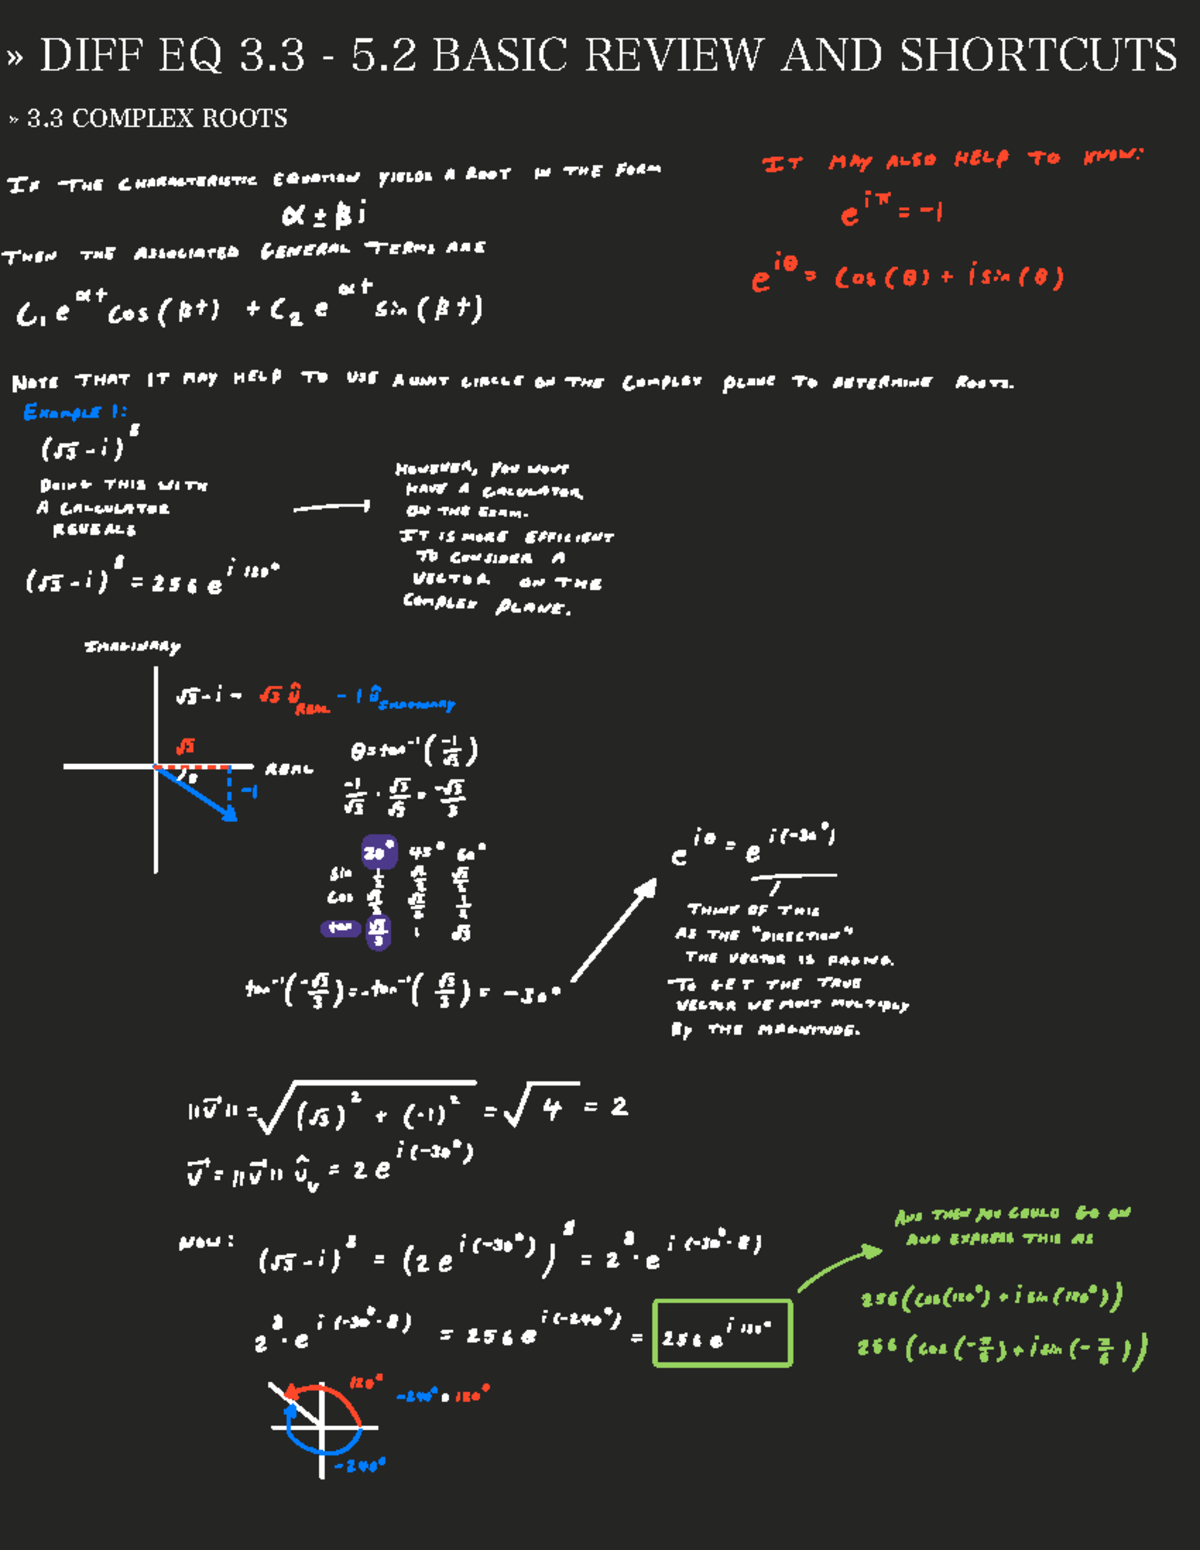 » DIFF EQ 3.3 - 5.2 BASIC REVIEW AND SHORTCUTS
» 3.3 COMPLEX ROOTS
IF THE CHARACTERISTIC EQUATION YIELDS A ROOT IN THE FORM
α ± βi
THEN THE ASSOCIATED GENERAL TERMS ARE
C₁e^αt cos(βt) + C₂e^αt sin(βt)
IT MAY ALSO HELP TO KNOW:
e^iπ = -1
e^iθ = cos(θ) + i sin(θ)
NOTE THAT IT MAY HELP TO USE A UNIT CIRCLE ON THE COMPLEX PLANE TO DETERMINE ROOTS.
EXAMPLE 1:
(√3 - i)^8
DOING THIS WITH
A CALCULATOR
REVEALS
(√3 - i)^8 = 256 e^i120°
HOWEVER, YOU WONT
HAVE A CALCULATOR
ON THE EXAM.
IT IS MORE EFFICIENT
TO CONSIDER A
VECTOR ON THE
COMPLEX PLANE.
IMAGINARY
√3 - i = √3 û REAL - 1 û IMAGINARY
√3
θ
REAL
-1
θ = tan⁻¹(-1/√3)
-1/√3 · √3/√3 = -√3/3
30° 45° 60°
sin
cos
tan √3/3 1 √3
tan⁻¹(-√3/3) = -tan⁻¹(√3/3) = -30°
e^iθ = e^i(-30°)
THINK OF THIS
AS THE "DIRECTION"
THE VECTOR IS FACING.
TO GET THE TRUE
VECTOR WE MUST MULTIPLY
BY THE MAGNITUDE.
||v⃗|| = √((√3)² + (-1)²) = √4 = 2
v⃗ = ||v⃗|| û_v = 2e^i(-30°)
NOW: (√3 - i)^8 = (2e^i(-30°))^8 = 2^8 · e^i(-30°·8)
2^8 · e^i(-30°·8) = 256e^i(-240°) = 256e^i120°
AND THEN YOU COULD GO ON
AND EXPRESS THIS AS
256(cos(120°) + i sin(120°))
256(cos(-π/6) + i sin(-π/6))
120°
-240° = 120°
-240°